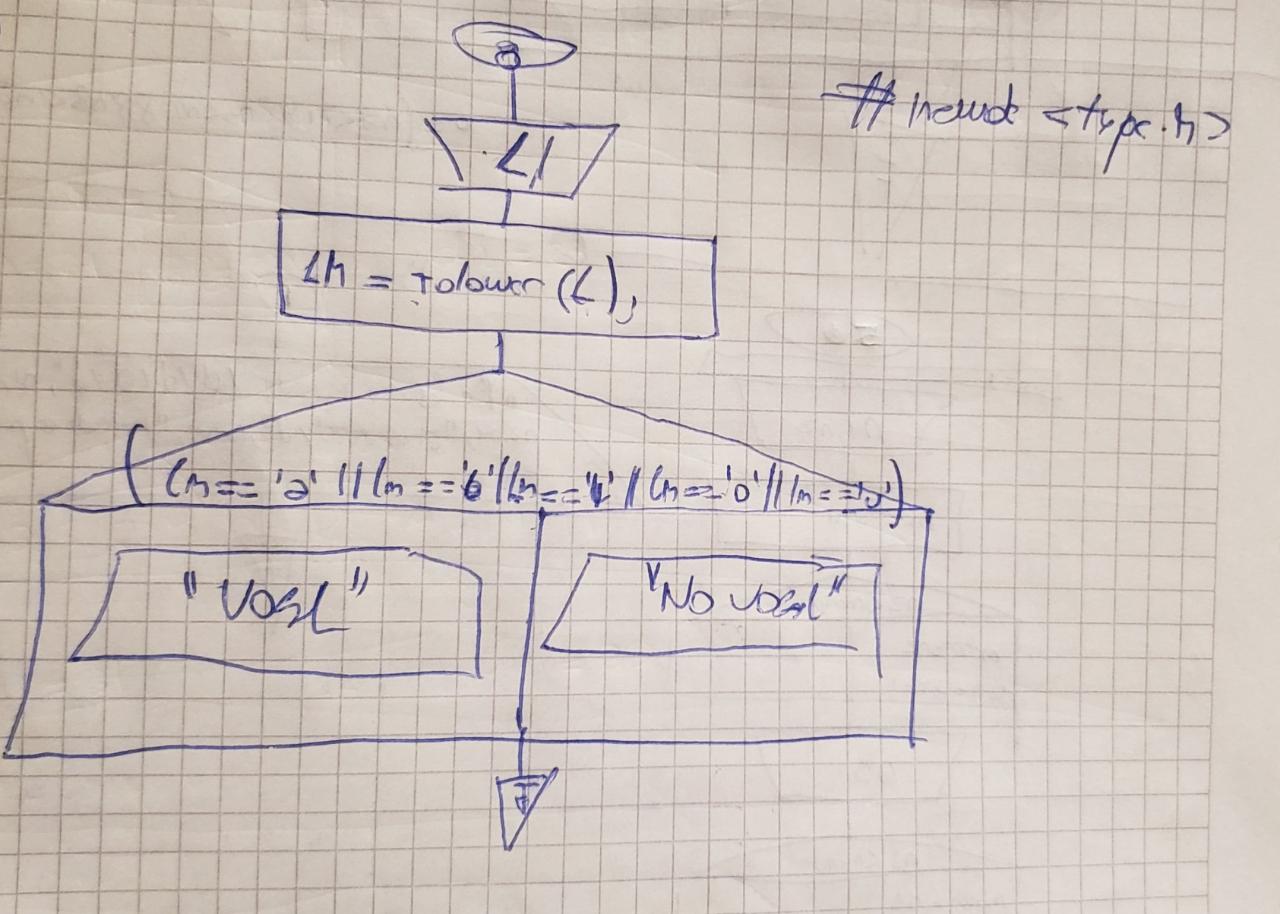 #include <type.h>
L1
Lm = Tolower (L);
(Lm == 'a' || Lm == 'e' || Lm == 'i' || Lm == 'o' || Lm == 'u')
"VOGL"
"No vocal"
F